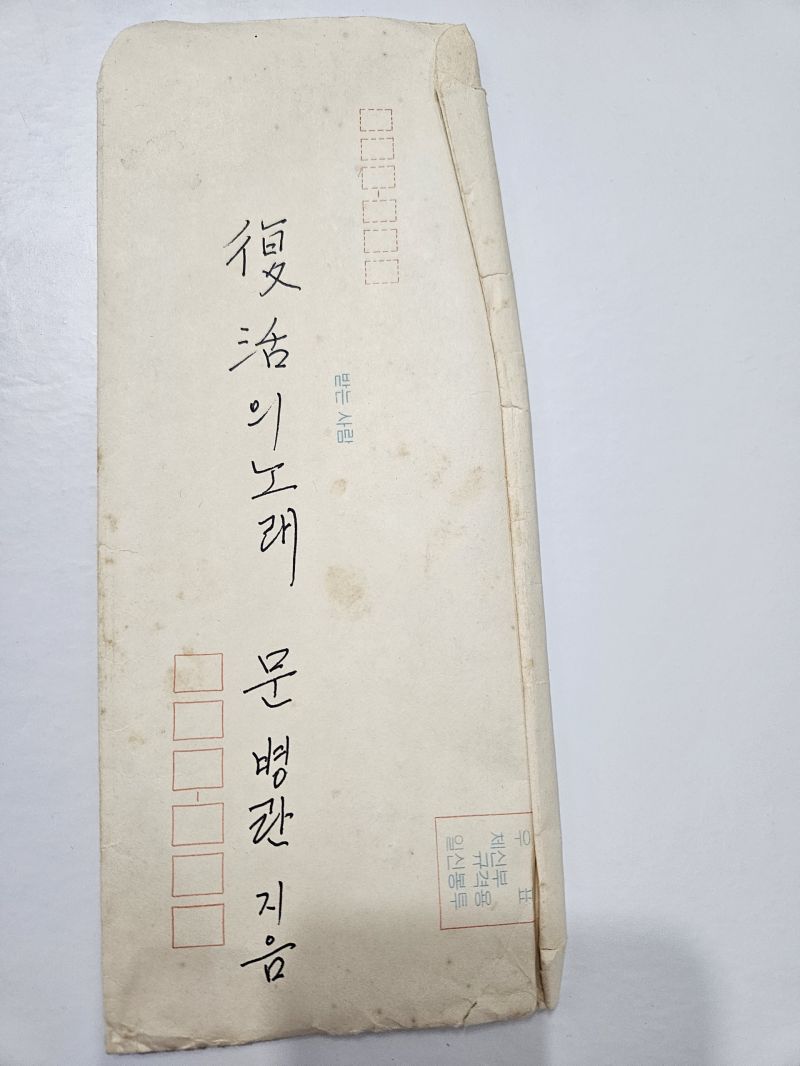 復活의 노래 문병란 지음
받는 사람
우표
체신부
규격용
일신봉투